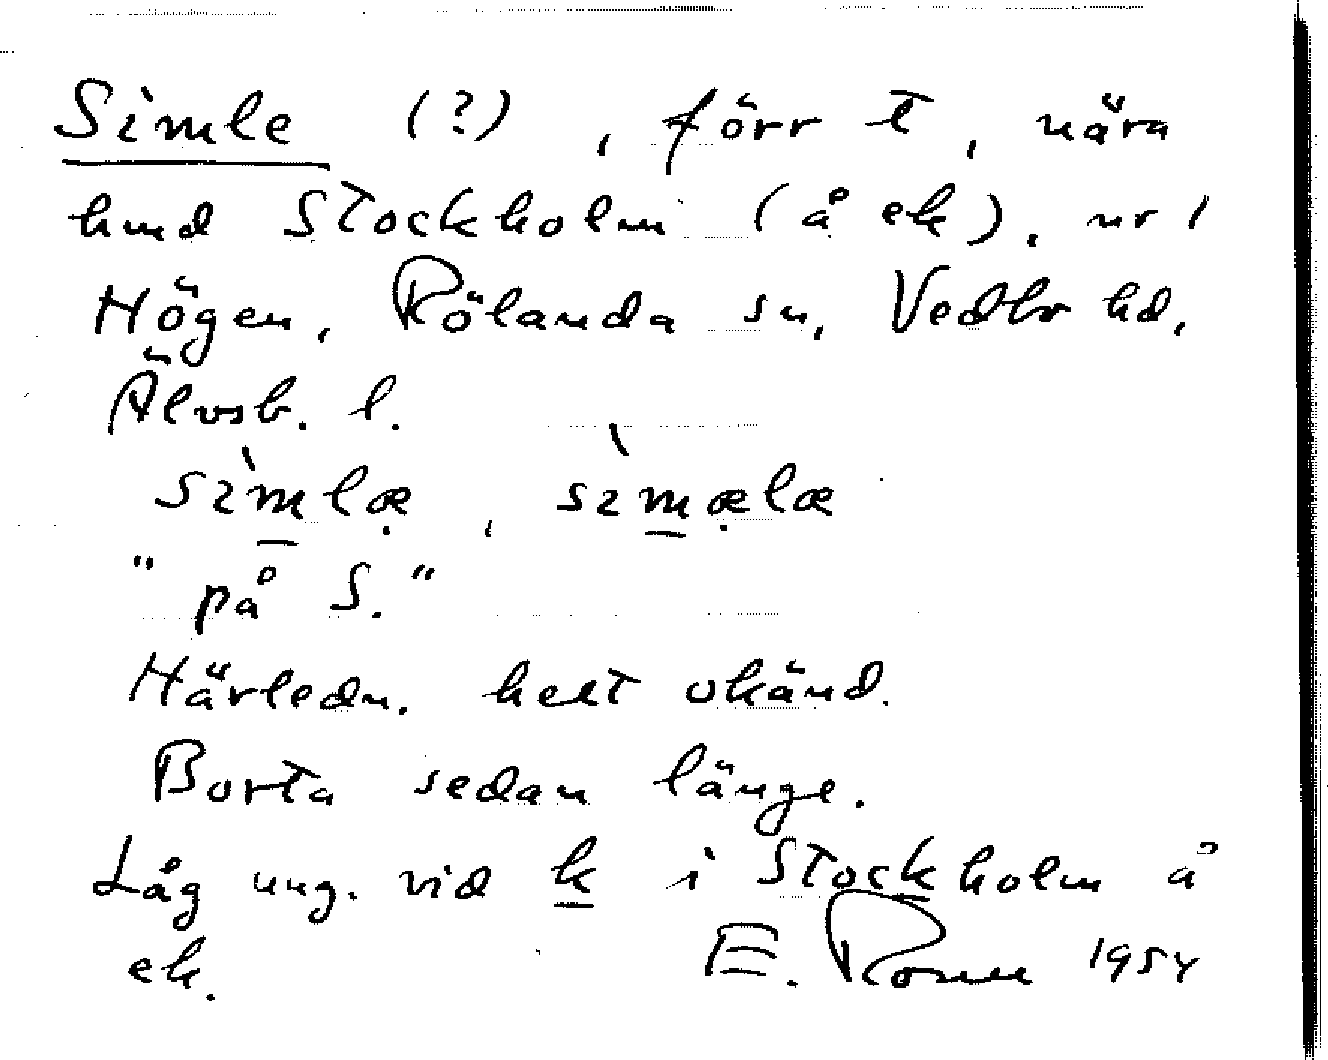 Simle (?), förr t, nära
hmd Stockholm (å ek), nr 1
Högen, Rölanda sn, Vedbo hd,
Älvsb. l.
sìmlæ, sìmælæ
"på S."
Härledn. helt okänd.
Borta sedan länge.
Låg ung. vid k i Stockholm å
ek. E. 1954